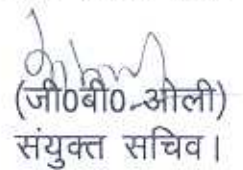 (जी0बी0 ओली)
संयुक्त सचिव।